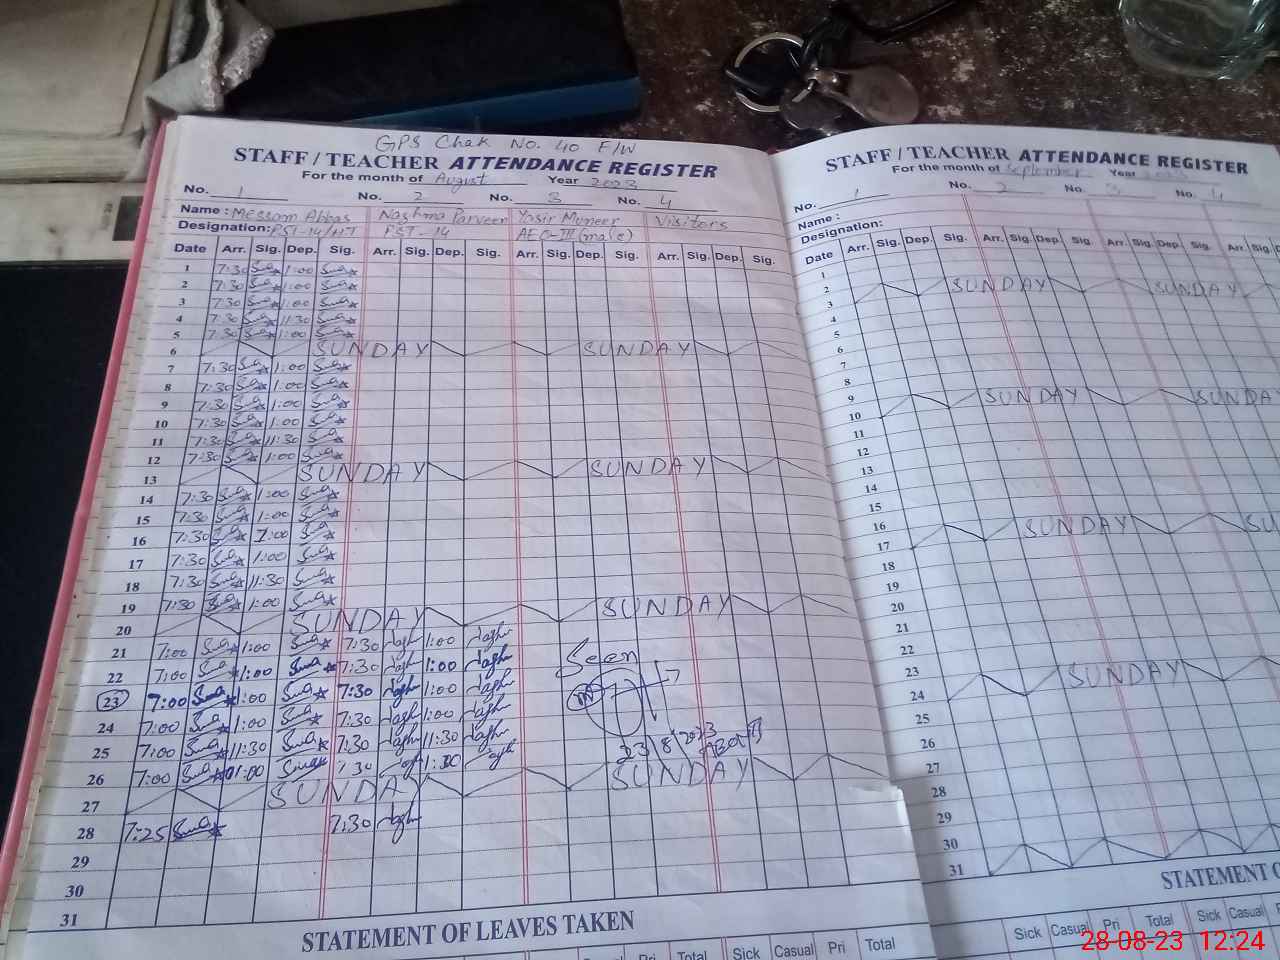 GPS Chak No. 40 F/W
STAFF / TEACHER ATTENDANCE REGISTER
For the month of August Year 2023
No. 1 No. 2 No. 3 No. 4
Name : Messam Abbas Naghma Parveen Yasir Muneer Visitors
Designation: PST-14/HT PST-14 AEO-III (male)
Date Arr. Sig. Dep. Sig. Arr. Sig. Dep. Sig. Arr. Sig. Dep. Sig. Arr. Sig. Dep. Sig.
1 7:30 1:00
2 7:30 1:00
3 7:30 1:00
4 7:30 11:30
5 7:30 1:00
6 SUNDAY SUNDAY
7 7:30 1:00
8 7:30 1:00
9 7:30 1:00
10 7:30 1:00
11 7:30 11:30
12 7:30 1:00
13 SUNDAY SUNDAY
14 7:30 1:00
15 7:30 1:00
16 7:30 1:00
17 7:30 1:00
18 7:30 11:30
19 7:30 1:00
20 SUNDAY SUNDAY
21 7:00 1:00 7:30 1:00
22 7:00 1:00 7:30 1:00 Seen
23 7:00 1:00 7:30 1:00
24 7:00 1:00 7:30 1:00
25 7:00 11:30 7:30 11:30 23/8/2023
26 7:00 01:00 7:30 1:30
27 SUNDAY SUNDAY
28 7:25 7:30
29
30
31
STATEMENT OF LEAVES TAKEN
Sick Casual Pri Total
STAFF / TEACHER ATTENDANCE REGISTER
For the month of September Year 2023
No. 1 No. 2 No. 3 No. 4
Name :
Designation:
Date Arr. Sig. Dep. Sig. Arr. Sig. Dep. Sig. Arr. Sig. Dep. Sig. Arr. Sig.
1
2 SUNDAY SUNDAY
3
4
5
6
7
8
9 SUNDAY SUNDA
10
11
12
13
14
15
16 SUNDAY SU
17
18
19
20
21
22
23 SUNDAY
24
25
26
27
28
29
30
31
STATEMENT O
Sick Casual Pri Total Sick Casual
28-08-23 12:24